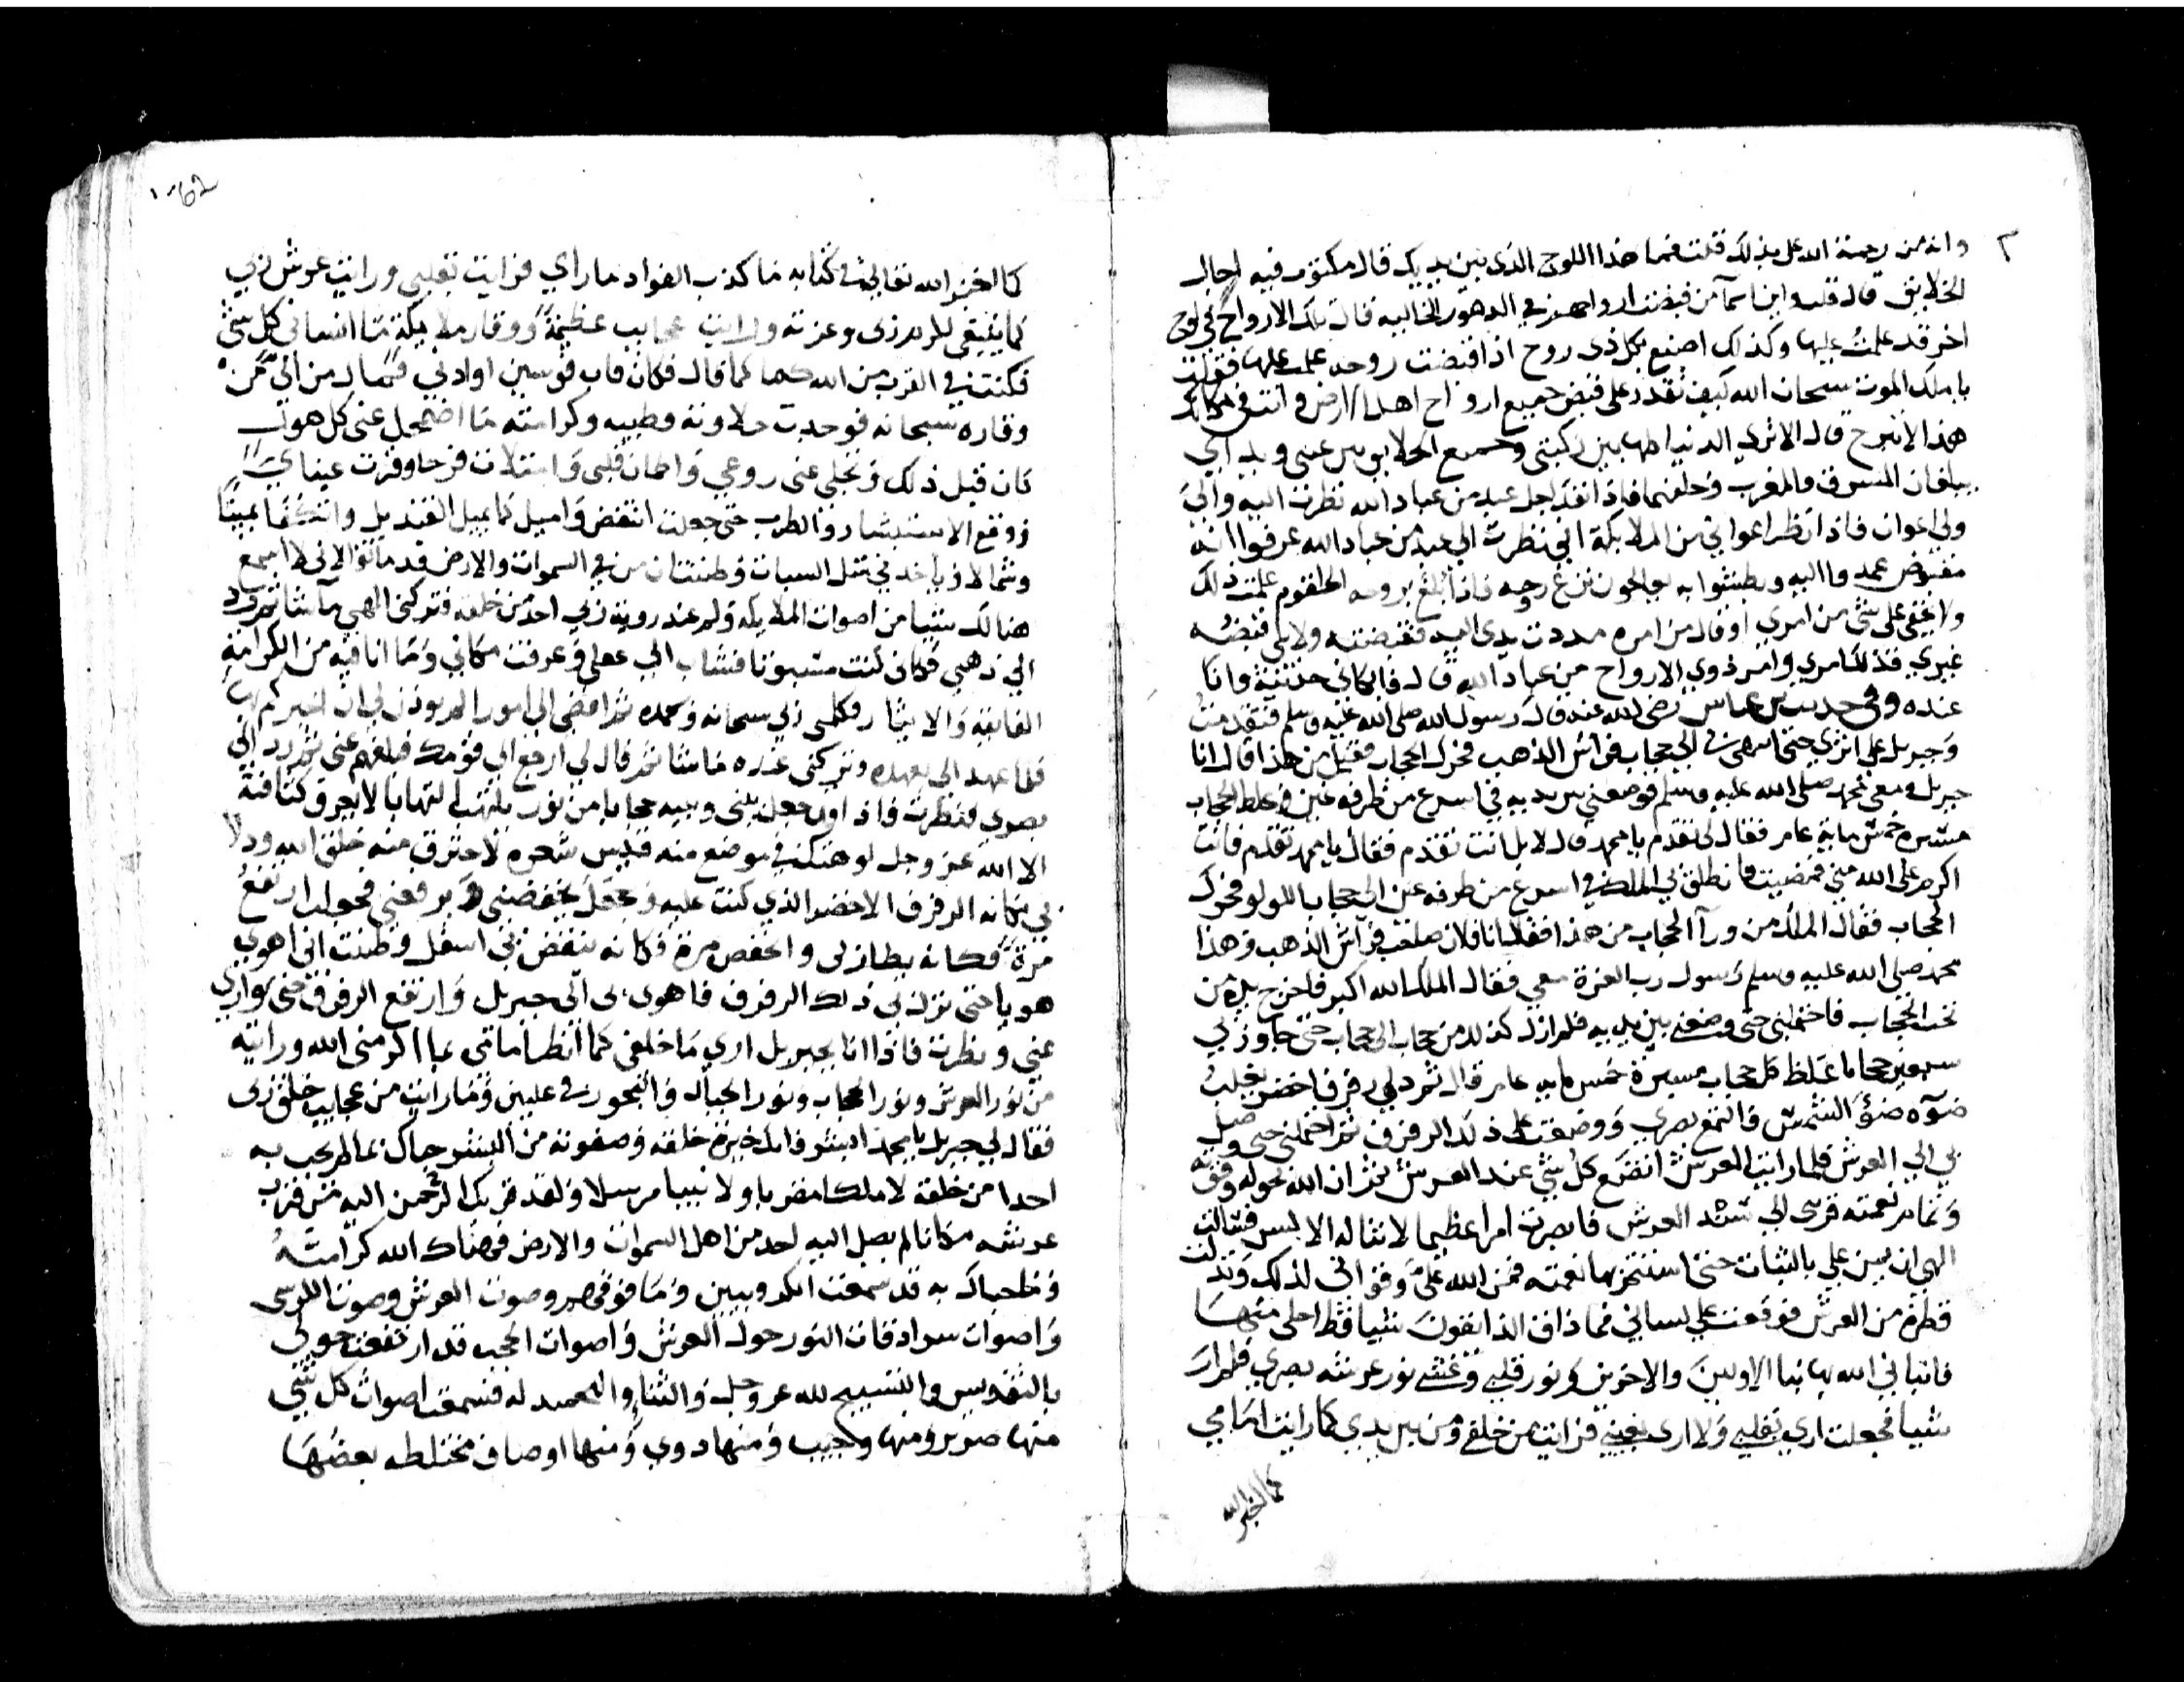 وانه من رحمة الله على بذلك قلت فما هذا اللوح الذى بين يديك قال مكتوب فيه اجال
الخلايق قال قلت اين اسمآ من قبضت ارواحهم في الدهور الخاليه قال تلك الارواح في لوح
اخر قد علمتُ عليها وكذلك اصنع بكل ذى روح اذا قبضت روحه علمت عليها فقلت
يا ملك الموت سبحان الله كيف تقدر على قبض جميع ارواح اهل الارض وانت في مكانك
هذا لا تبرح قال الا ترى الدنيا كلها بين ركبتي وجميع الخلايق بين عيني ويداي
يبلغان المشرق والمغرب وخلفهما فاذا نفذ اجل عبد من عباد الله نظرت اليه والى
ولي اعوان فاذا نظر اعواني من الملايكة اني نظرت الي عبد من عباد الله عرفوا انه
مقبوض عمدوا اليه وبطشوا به يعالجون نزع روحه فاذا بلغ بروحه الحلقوم علمت ذلك
ولا يخفى على شي من امري او قال من امره مددت يدي اليه فقبضته ولا يلى قبضه
غيري فذلك امري وامر ذوي الارواح من عباد الله قال فابكاني حديثه وانا
عنده وفي حديث بن عباس رضى الله عنه قال رسول الله صلى الله عليه وسلم فتقدمت
وجبريل على اثري حتى انتهى بي الى حجاب فراش الذهب فحرك الحجاب فقيل من هذا قال انا
جبريل ومعي محمد صلى الله عليه وسلم فوضعني بين يديه في اسرع من طرفه عين وغلظ الحجاب
مسيره خمس ماية عام فقال لى تقدم يا محمد قال لا بل انت تقدم فقال يا محمد تقدم فانت
اكرم على الله مني فمضيت فانطلق بي الملك في اسرع من طرفه عين الى حجاب اللولو فحرك
الحجاب فقال الملك من ورآ الحجاب من هذا فقال انا فلان صاحب فراش الذهب وهذا
محمد صلى الله عليه وسلم رسول رب العزة معي فقال الملك الله اكبر فاخرج يده من
تحت الحجاب فاحتملني حتى وضعني بين يديه فلم ازل كذلك من حجاب الى حجاب حتى جاوز بي
سبعين حجابا غلظ كل حجاب مسيرة خمس مايه عام قال ثم دلي رفرف اخضر يغلب
ضوه ضؤ الشمس فالتمع بصري ووضعت على ذلك الرفرف ثم احتملني حتى وصل
بي الي العرش فلما رايت العرش اتضع كل شي عند العرش ثم ان الله بحوله وقوته
وتمام نعمته قربني الى سند العرش فابصرت امرا عظيما لا تناله الالسن فسالت
الهي ان يمن على بالثبات حتى استتم بها نعمته فمن الله علي وقواني لذلك وتدلت
قطرة من العرش فوقعت على لساني فما ذاق الذايقون شيا قط احلى منها
فانباني الله بها نبا الاولين والاخرين ونور قلبي وغشي نور عرشه بصري فلم ار
شيا فجعلت اري بقلبي ولا ارى بعيني فرايت من خلفي ومن بين يدي كما رايت امامي
كما اخبر الله
كما اخبر الله تعالى في كتابه ما كذب الفواد ما راي فرايت بقلبي ورايت عرش ربي
كما ينبغي لكرم ربي وعزته ورايت عجايب عظيمة ووقار ملايكة ما انساني كل شي
فكنت في القرب من الله كما قال فكان قاب قوسين او ادني
وقاره سبحانه فوجدت حلاوته وطيبه وكرامته ما اضمحل عنى كل هول
كان قبل ذلك وتجلي عنى روعي واطمان قلبى وامتلات فرحا وقرت عيناي
ووقع الاستبشار والطرب حتى جعلت انتفض واميل كما يميل القنديل وانتكفا يمينا
وشمالا وياخذني مثل السبات وظننت ان من في السموات والارض قد ماتوا الا اني لا اسمع
هنالك شيا من اصوات الملايكه ولم ار عند روية ربي احدا من خلقه فتركني الهي ما شا ثم رد
الي ذهني فكاني كنت مسبوتا فثاب الي عقلي وعرفت مكاني وما انا فيه من الكرامة
الفايقه والايثار فكلمني ربي سبحانه وبحمده ثم افضى الي امورا لم يوذن لي ان اخبركم بها
فلما عهد الي بعهده وتركني عنده ما شا ثم قال لي ارجع الي قومك فبلغهم عني ثم رد الي
بصري فنظرت فاذا هو جعل بيني وبينه حجابا من نور يلتهب التهابا لا يعرف كثافته
الا الله عز وجل لو هتك في موضع منه قبس شعره لاحترق منه خلق الله ودلا
بي مكانه الرفرف الاخضر الذي كنت عليه وجعل يخفضني ويرفعني فجعلت ارتفع
مرة فكانه يطار بي وانخفض مرة وكانه ينقض بي اسفل وظننت اني اهوي
هويا حتى نزل بي ذلك الرفرف فاهوى بى الى جبريل وارتفع الرفرف حتى توارى
عني ونظرت فاذا انا بجبريل اري ما خلفي كما انظر امامي بما اكرمنى الله ورايته
من نور العرش ونور الحجاب ونور الجبال والبحور في عليين وما رايت من عجايب خلق ربي
فقال لي جبريل يا محمد ابشر فانك خيرة خلقه وصفوته من البشر حباك بما لم يحب به
احدا من خلقه لا ملكا مقربا ولا نبيا مرسلا ولقد قربك الرحمن اليه من قرب
عرشه مكانا لم يصل اليه احد من اهل السموات والارض فهناك الله كرامته
وما حباك به قد سمعت الكروبيين وما فوقهم وصوت العرش وصوت الكرسي
واصوات سرادقات النور حول العرش واصوات الحجب قد ارتفعت حولى
بالتقديس والتسبيح لله عز وجل والثناء والتحميد له فسمعت اصوات كل شي
منها صرير ومنها وجيب ومنها دوي ومنها اوصاف مختلطه بعضها